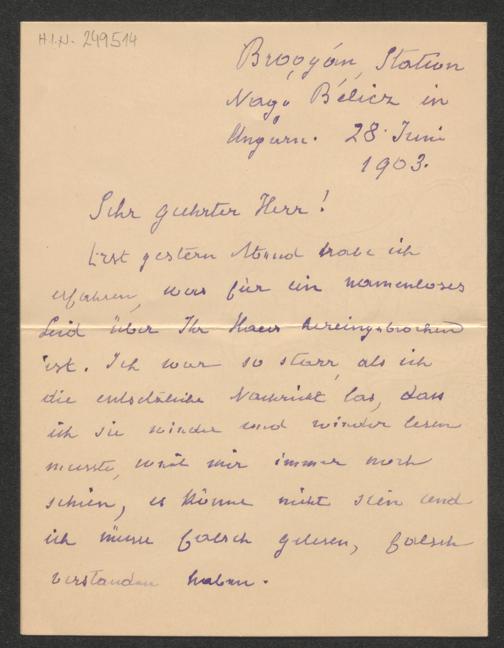 H.I.N. 249514
Brogyán, Station
Nagy Bélicz in
Ungarn. 28 Juni
1903.
Sehr geehrter Herr!
Erst gestern Abend habe ich
erfahren, was für ein namenloses
Leid über Ihr Haus hereingebrochen
ist. Ich war so starr, als ich
die entsetzliche Nachricht las, dass
ich sie wieder und wieder lesen
musste, weil mir immer noch
schien, es könne nicht sein und
ich müsse falsch gelesen, falsch
verstanden haben.